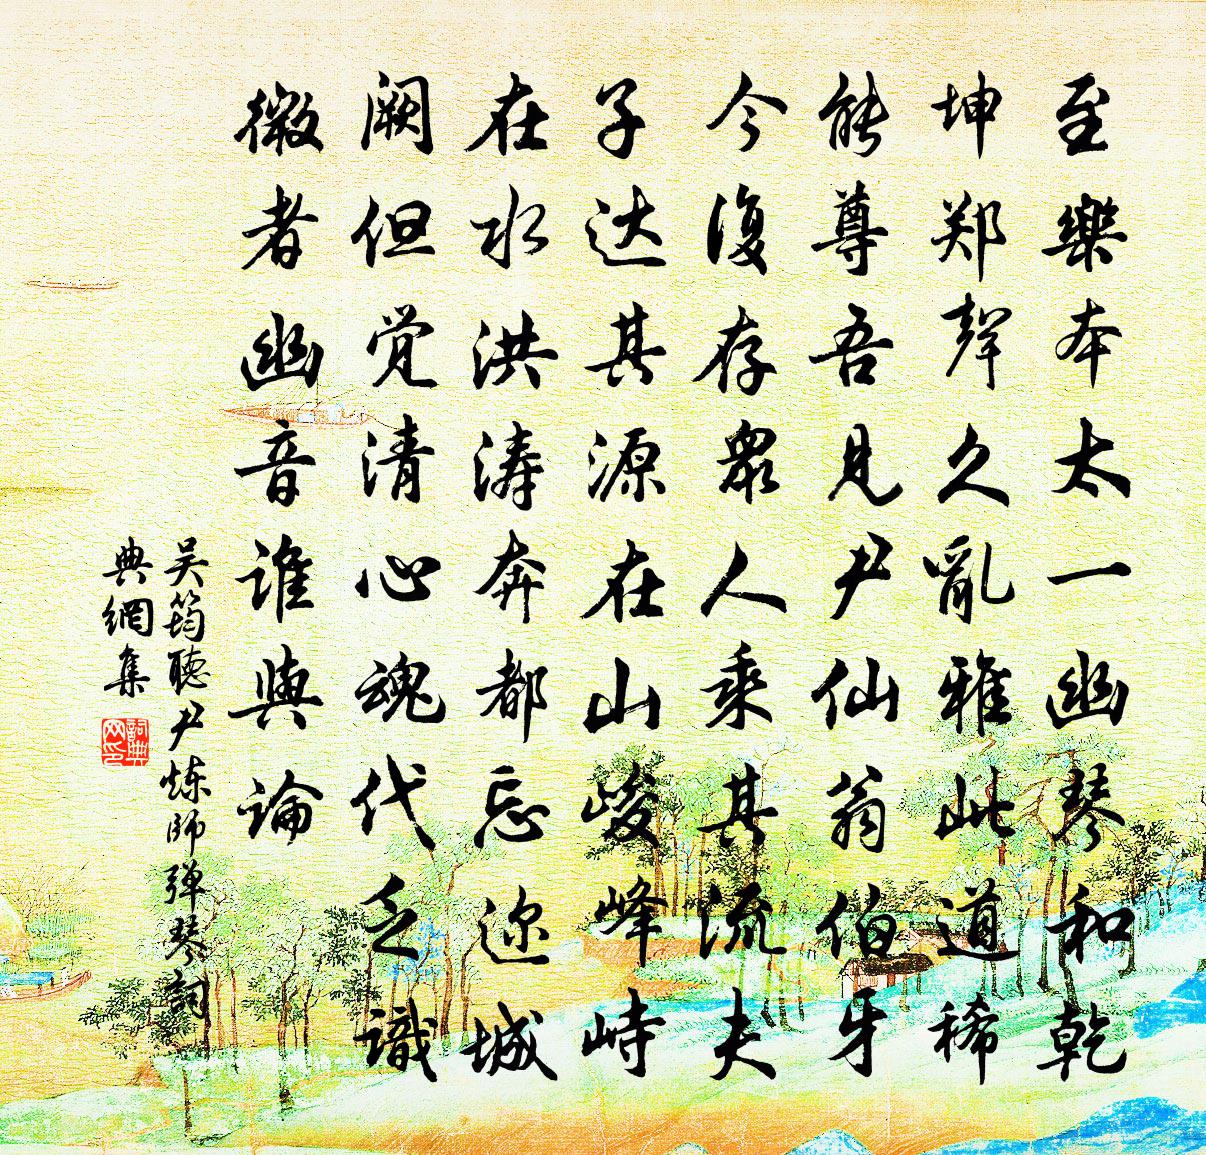 至樂本太一幽琴和乾
坤郑聲久亂雅此道稀
能尊吾見尹仙翁伯牙
今復存衆人乘其流夫
子达其源在山峻峰峙
在水洪涛奔都忘迩城
阙但觉清心魂代乏識
微者幽音谁與論
吴筠聽尹炼師弹琴詞
典網集
詞典
网印